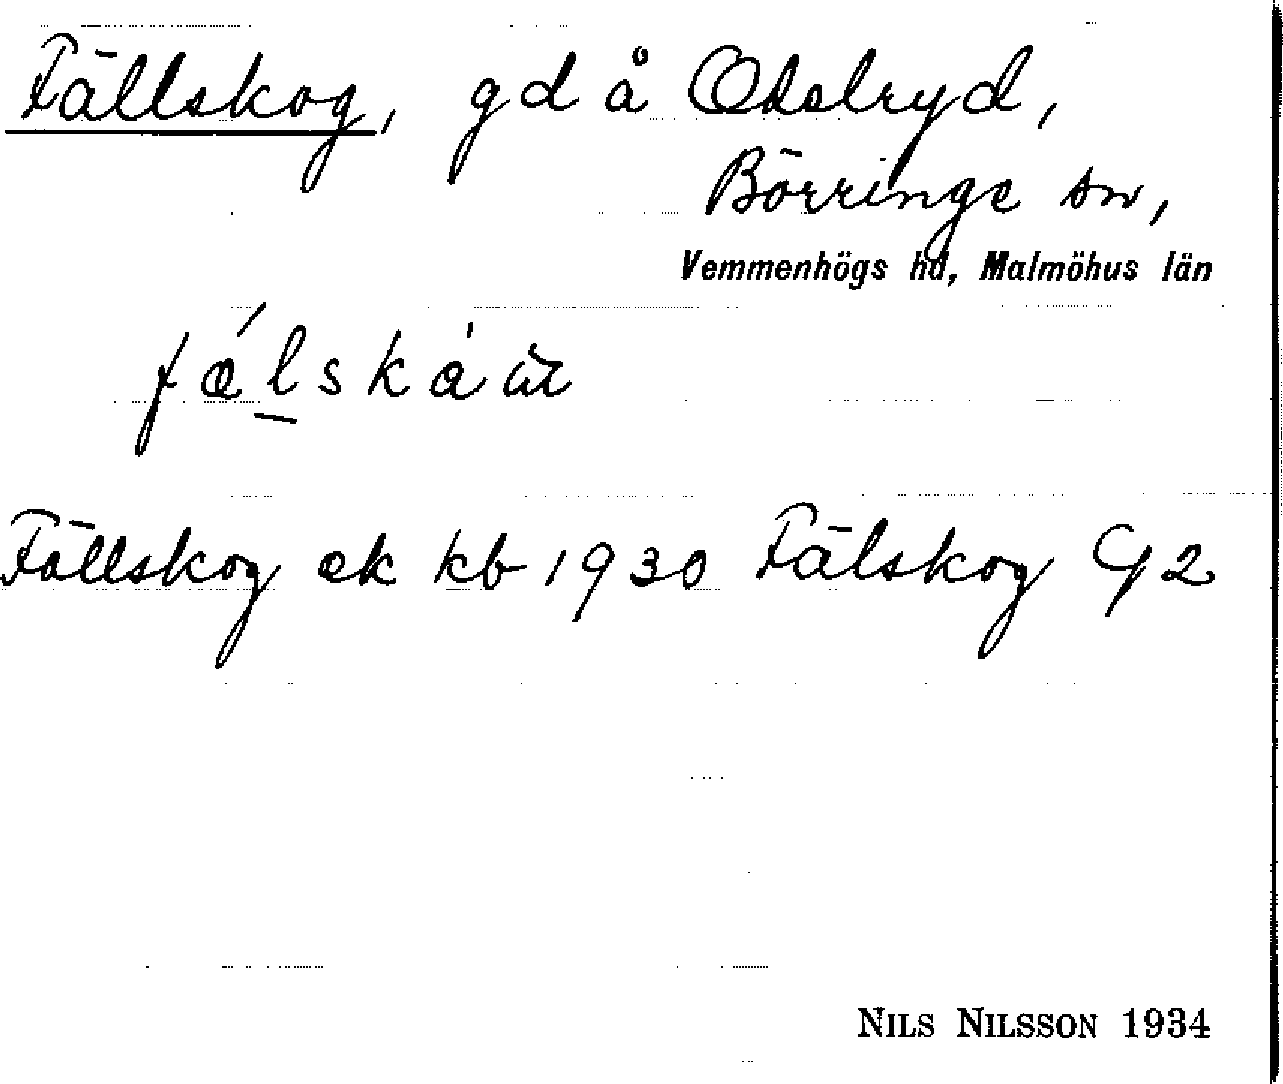 Fällskog, gd å Odslryd,
Börringe sn,
Vemmenhögs hd, Malmöhus län
Fällskog ek kb 1930 Fälskog G2
NILS NILSSON 1934